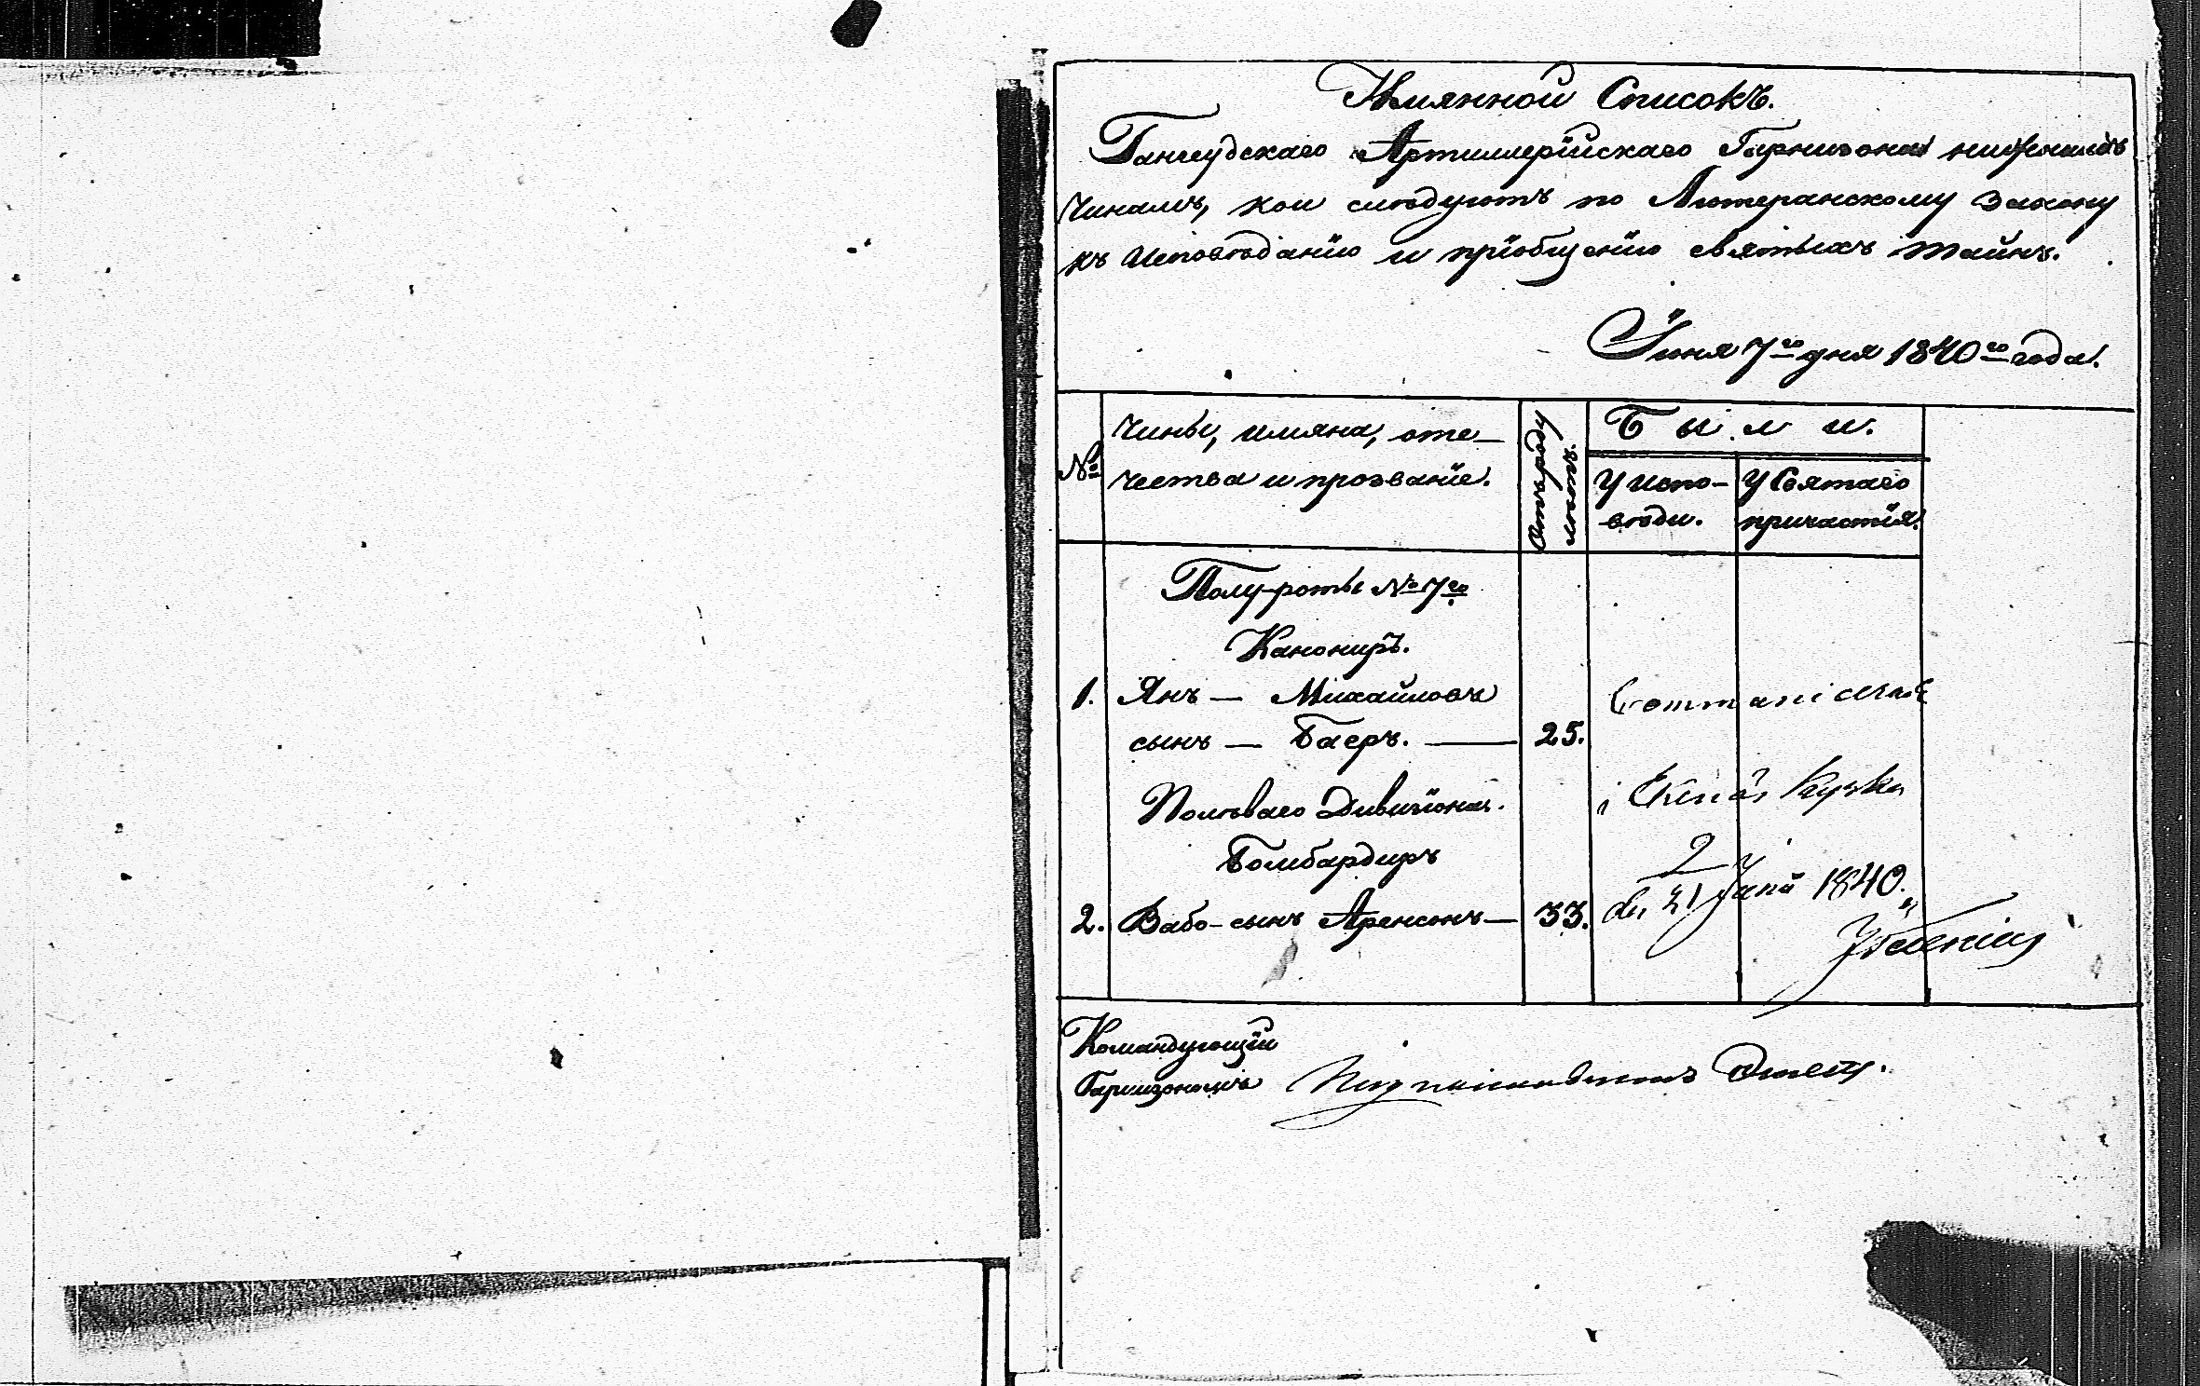 Имянной Списокъ.
Гангеудскаго Артиллерійскаго Гарнизона нижнимъ
Чинамъ, кои слѣдуютъ по Лютеранскому закону
къ Исповѣданію и пріобщенію святыхъ тайнъ.
Іюня 7го дня 1840го года.
№
Чины, имяна, оте-
чества и прозваніе.
Отъ роду
лѣтъ.
Были.
У испо-
вѣди.
У Святаго
причастія.
Полу-роты № 7го
Канониръ.
1. Янъ — Михайловъ
сынъ — Баеръ. — 25.
Communicerat
i Ekenäs kyrka
Полеваго Дивизіона.
Бомбардиръ
2. Вабо-сынъ Аренсонъ — 33.
den 21 Junii 1840.
Командующій
Гарнизономъ